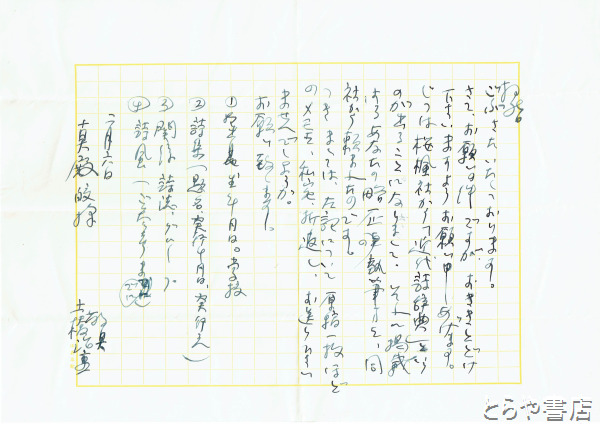 拝啓
ごぶさたいたしております。
さて、お願いの件ですが、おききとどけ
下さいますようお願い申しあげます。
じつは桜楓社から「近代詩辞典」という
のが出ることになりまして、それに掲載
するあなたの略歴の執筆を、同
社から頼まれたのです。
つきましては、左記について原稿 枚ほど
のメモを、私宛、折返し、お送り下さい
ませんでしょうか。
お願い致します。
① 生年月日。学校
② 詩集（題名、発行年月日、発行元）
③ 関係詩誌・グループ
④ 詩風
二月六日
敬具
土橋治重
真殿皎様
とらや書店